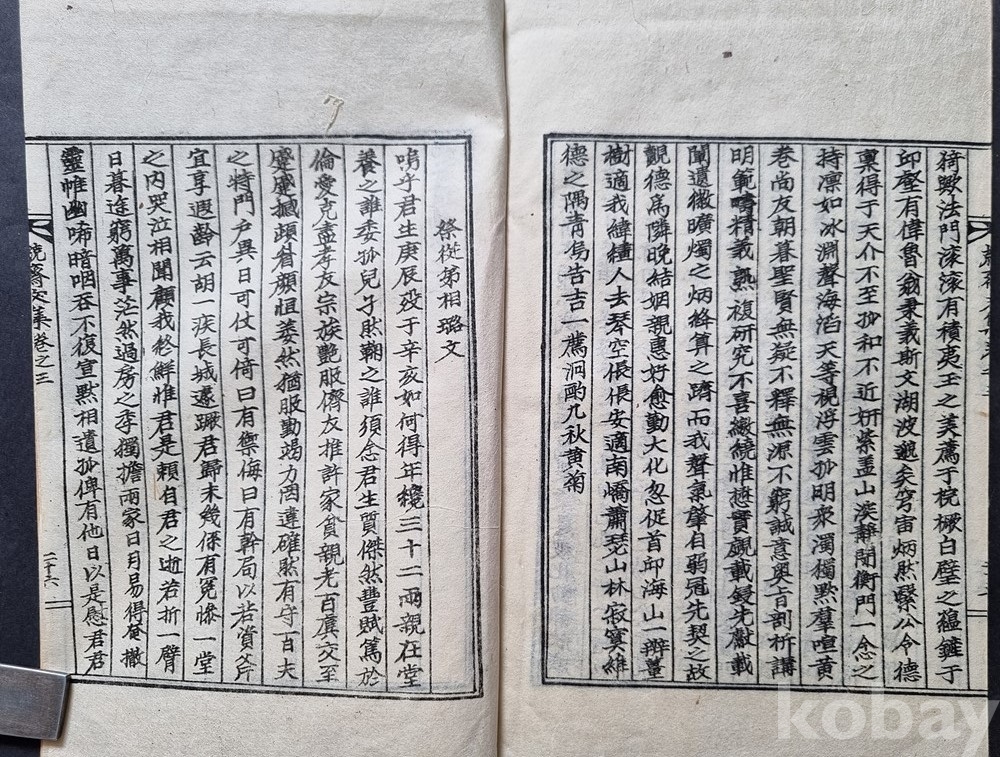 猗歟法門滾滾有積夷王之美薦于梡橛白璧之蘊鏟于
邱壑有偉魯翁秉義斯文湖波邈矣穹宙炳然緊公令德
稟得于天介不至抄和不近妍紫盖山深靜閒衡門一念之
持凛如冰淵聲海滔天等視浮雲抄明衆濁獨黙羣喧黄
巷尚友朝暮聖賢無疑不釋無源不窮誠意奥旨剖析講
明範精義熟複研究不喜繳繞惟懋實覷載鋟先獻載
闡遺徽曠燭之炳絳算之躋而我聲氣肇自弱冠先契之故
觀德爲隣晩結姻親惠好愈勤大化忽促首邱海山一辨薑
樹適我緯繣人去琴空倀倀安適南嶠蕭瑟山林寂寞維
德之隅青烏告吉一薦泂酌九秋黄菊
祭從弟相璐文
嗚乎君生庚辰歿于辛亥如何得年纔三十二兩親在堂
養之誰委抄兒孑然鞠之誰須念君生質傑然豐賦篤於
倫愛克盡孝友宗族艶服儕友推許家貧親老百廙交至
蹙蹙撼頞眉顔怛萎然猶服勤竭力罔違確然有守一百夫
之特門戶異日可仗可倚曰有禦侮曰有幹局以若賞斧
宜享遐齡云胡一疾長城遽蹶君歸未幾侄有冤慘一堂
之内哭泣相聞顧我終鮮惟君是賴自君之逝若折一臂
日暮途窮萬事茫然過房之季獨擔兩家日月易得奄撤
靈帷幽唏暗咽吞不復宣黙相遺抄俾有他日以是慰君君
齋文集卷之三
二十六
kobay